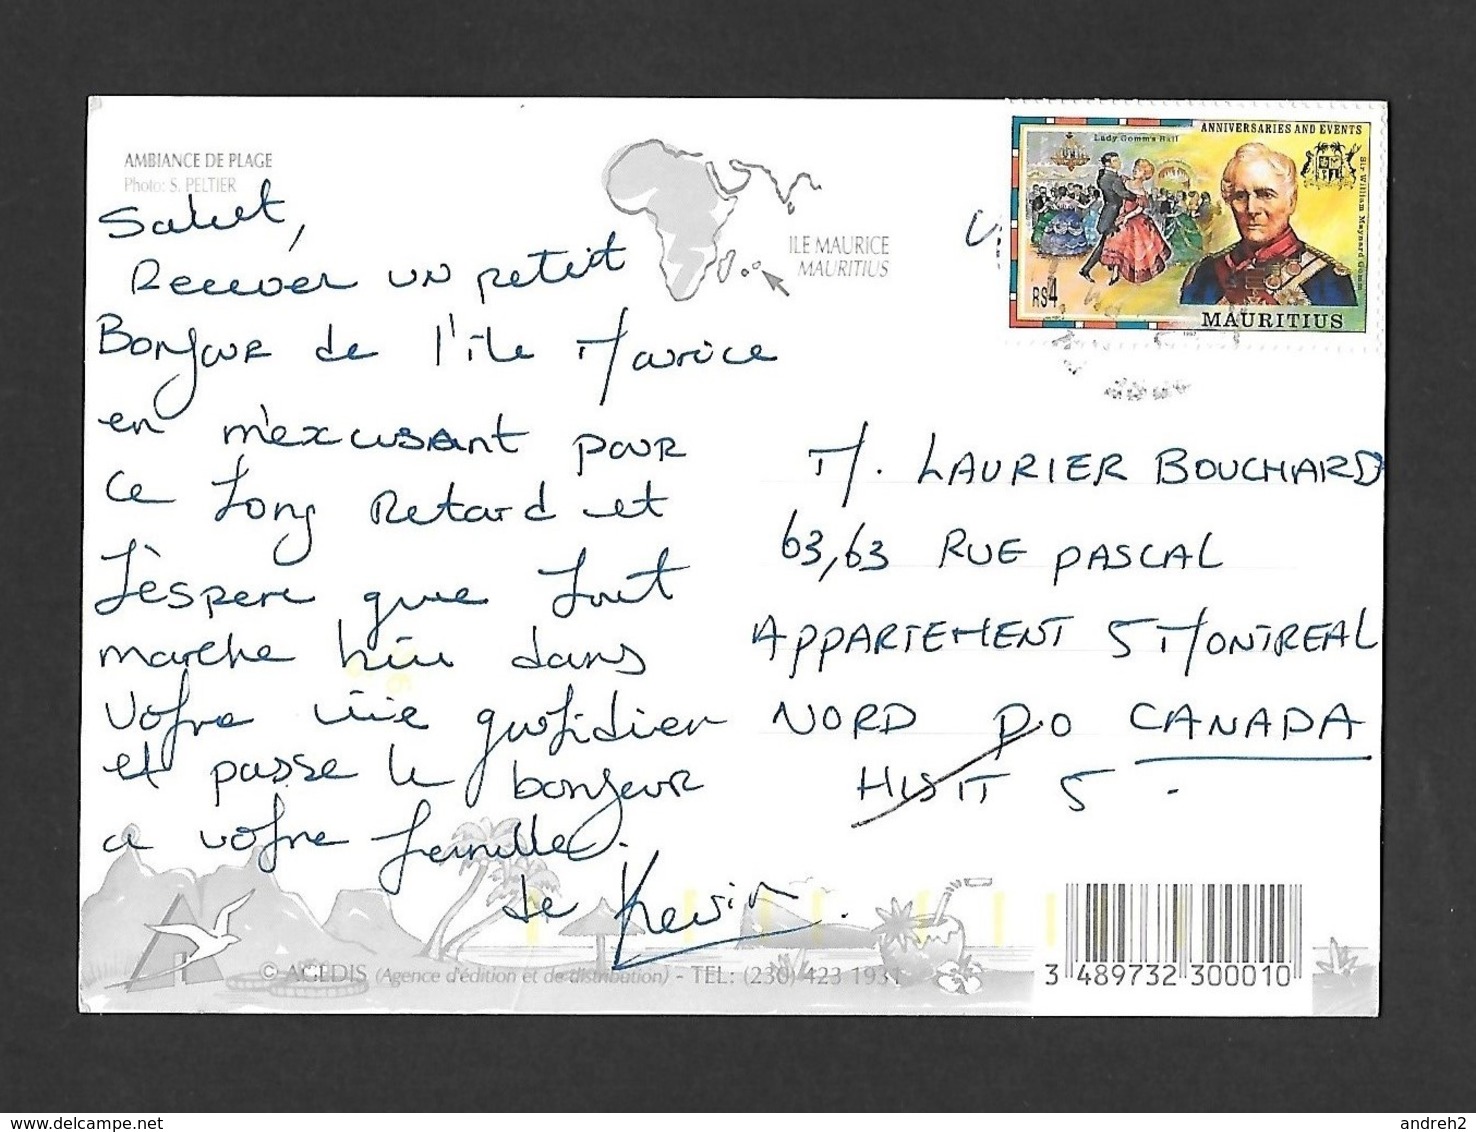 AMBIANCE DE PLAGE
Photo: S. PELTIER
ILE MAURICE
MAURITIUS
ANNIVERSARIES AND EVENTS
Lady Gomm's Ball
Sir William Maynard Gomm
RS4
MAURITIUS
1997
Salut,
Recever un petit
Bonjour de l'île Maurice
en m'excusant pour
ce long Retard et
J'èspere que tout
marche bien dans
votre vie quotidien
et passe le bonjour
a votre famille.
de Kevin.
M. LAURIER BOUCHARD
63,63 RUE PASCAL
APPARTEMENT 5 MONTREAL
NORD P.O CANADA
5.
© ACEDIS (Agence d'édition et de distribution) - TEL: (230) 423 1931
3 489732 300010
andreh2